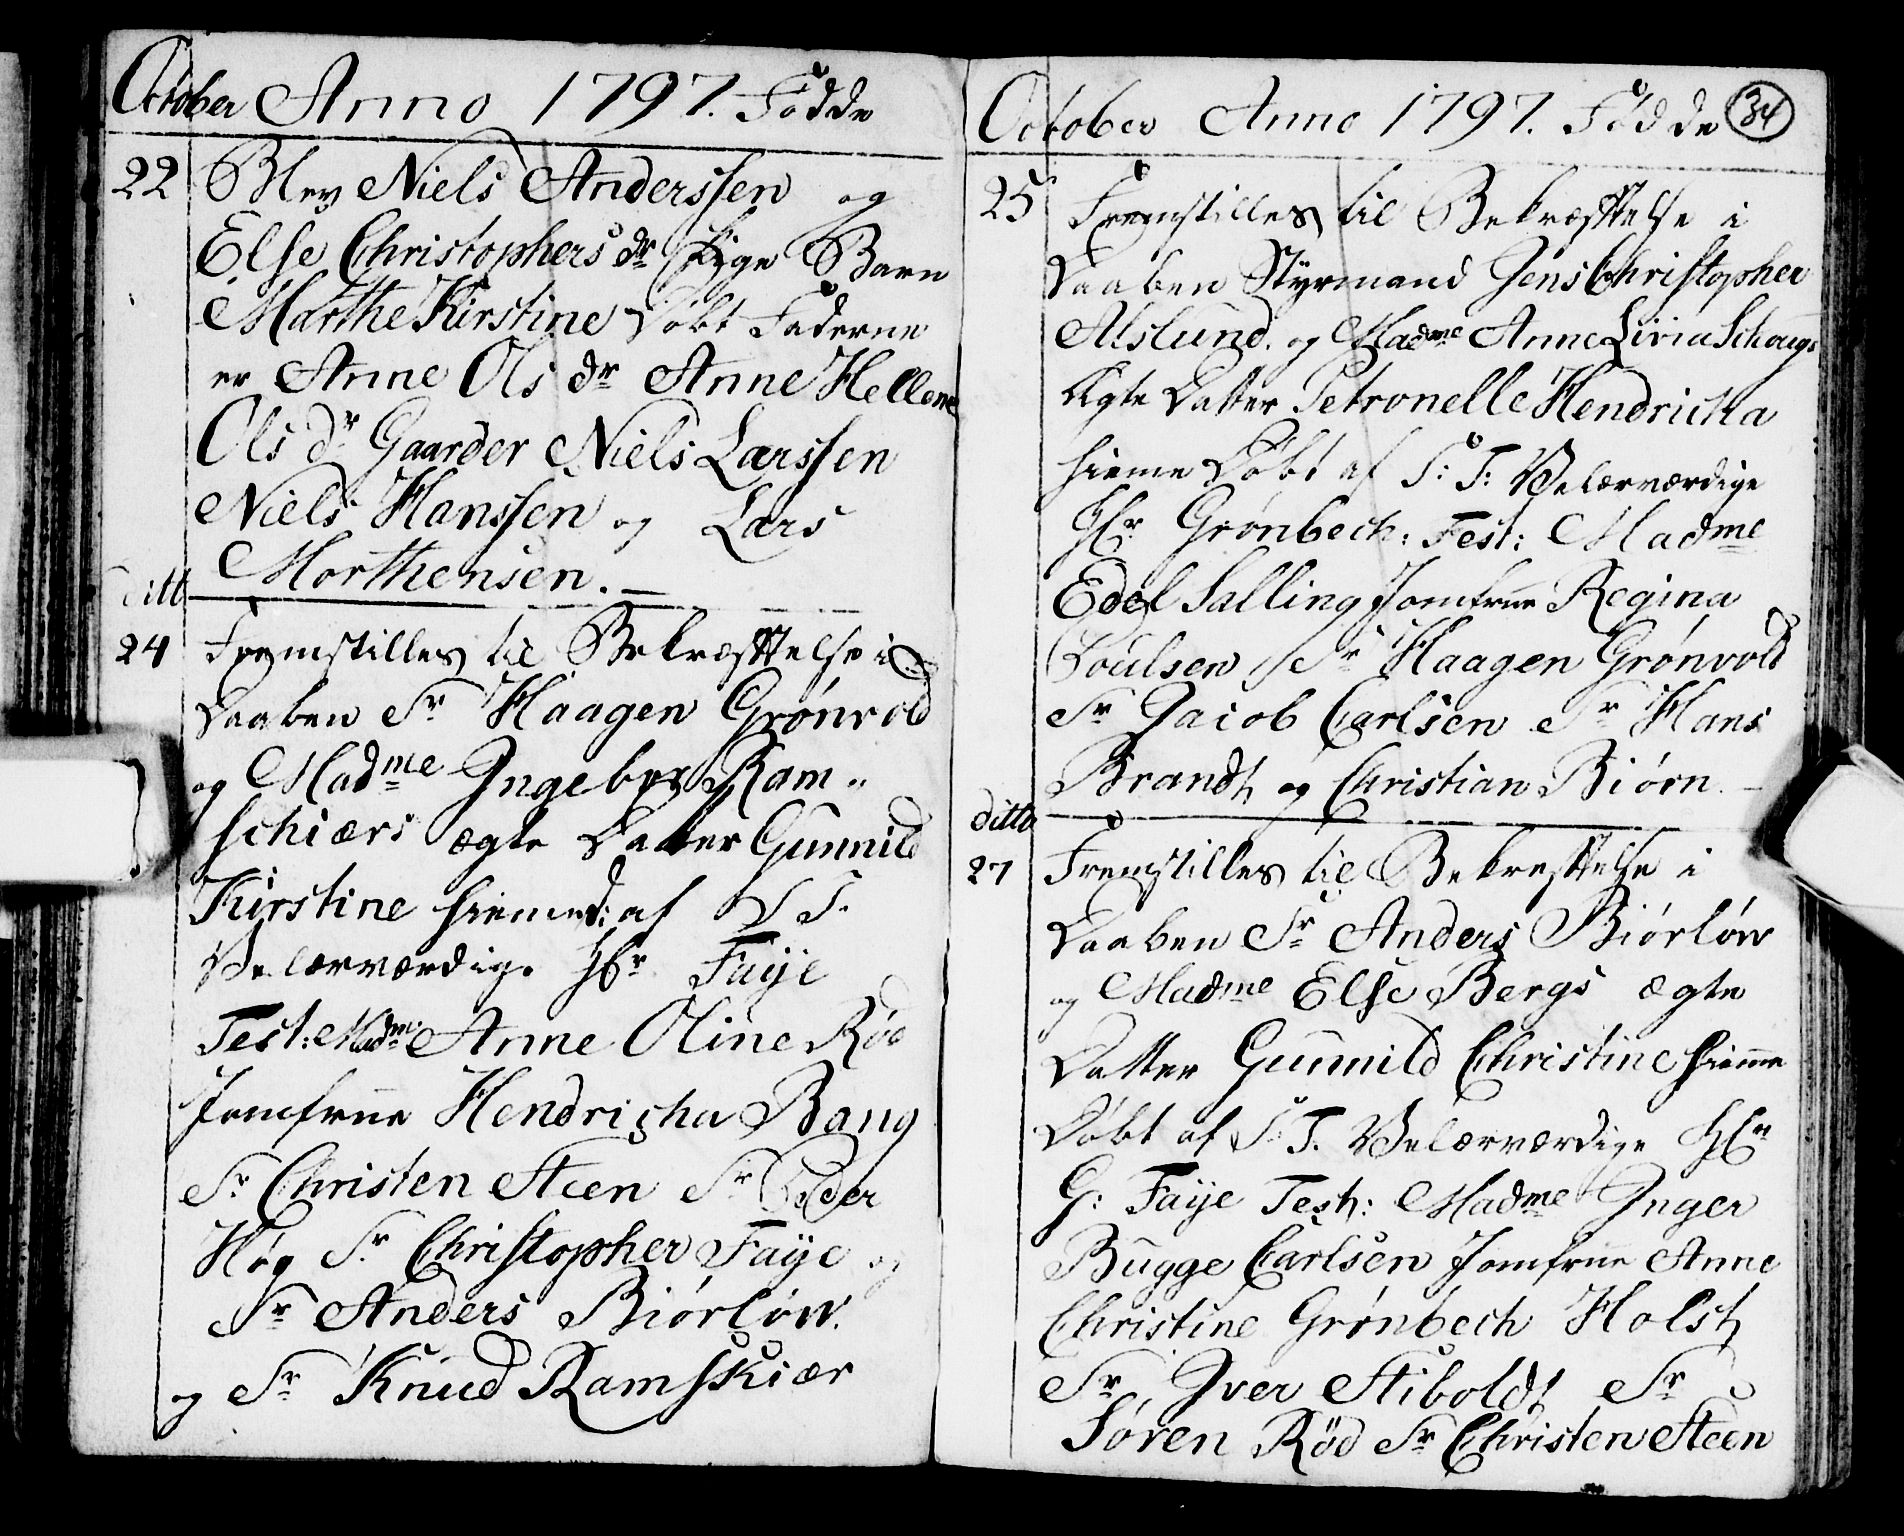 October Anno 1797. Fødde
22 Blev Niels Anderssen og
Else Christophersdr Ægte Barn
Marthe Kirstine døbt Faderne
er Anne Ols dr Anne Hellene
Ols dr Gaarder Niels Larssen
Niels Hanssen og Lars
Morthensen.
ditto
24 Fremstilles til Bekræftelse i
Daaben Sr Haagen Grønvold
og Madme Ingeber Ram„
schiærs ægte Datter Gunnild
Kirstine hiemed: af S T.
Velærværdige Hr Faÿe
Test: Madme Anne Oline Rød
Jomfrue Hendricha Bang
Sr Christen Steen Sr Peder
Høg Sr Christopher Faÿe og
Sr Anders Biørløw.
og Sr Knud Ramskiær
October Anno 1797. Fødde 34
25 Fremstilles til Bekræftelse i
Daaben Styrmand Jens Christopher
Alslund. og Madme Anne Livia Schougs
Ægte Datter Petronelle Hendricka
hieme Døbt af S: T: Velærværdige
Hr Grønbech: Test: Madme
Edel Salling Jomfrue Regina
Poulsen Sr Haagen Grønvold
Sr Jacob Carlsen Sr Hans
Brandt og Christian Biørn.
ditto
27 Fremstilles til Bekreftelse i
Daaben Sr Anders Biørløw
og Madme Else Bergs ægte
Datter Gunnild Christine hieme
Døbt af S. T. Velærværdige Hr
G: Faÿe Test: Madme Inger
Bugge Carlsen Jomfrue Anne
Christine Grønbech Holst
Sr Iver Stiboldt Sr
Søren Rød Sr Christen Steen